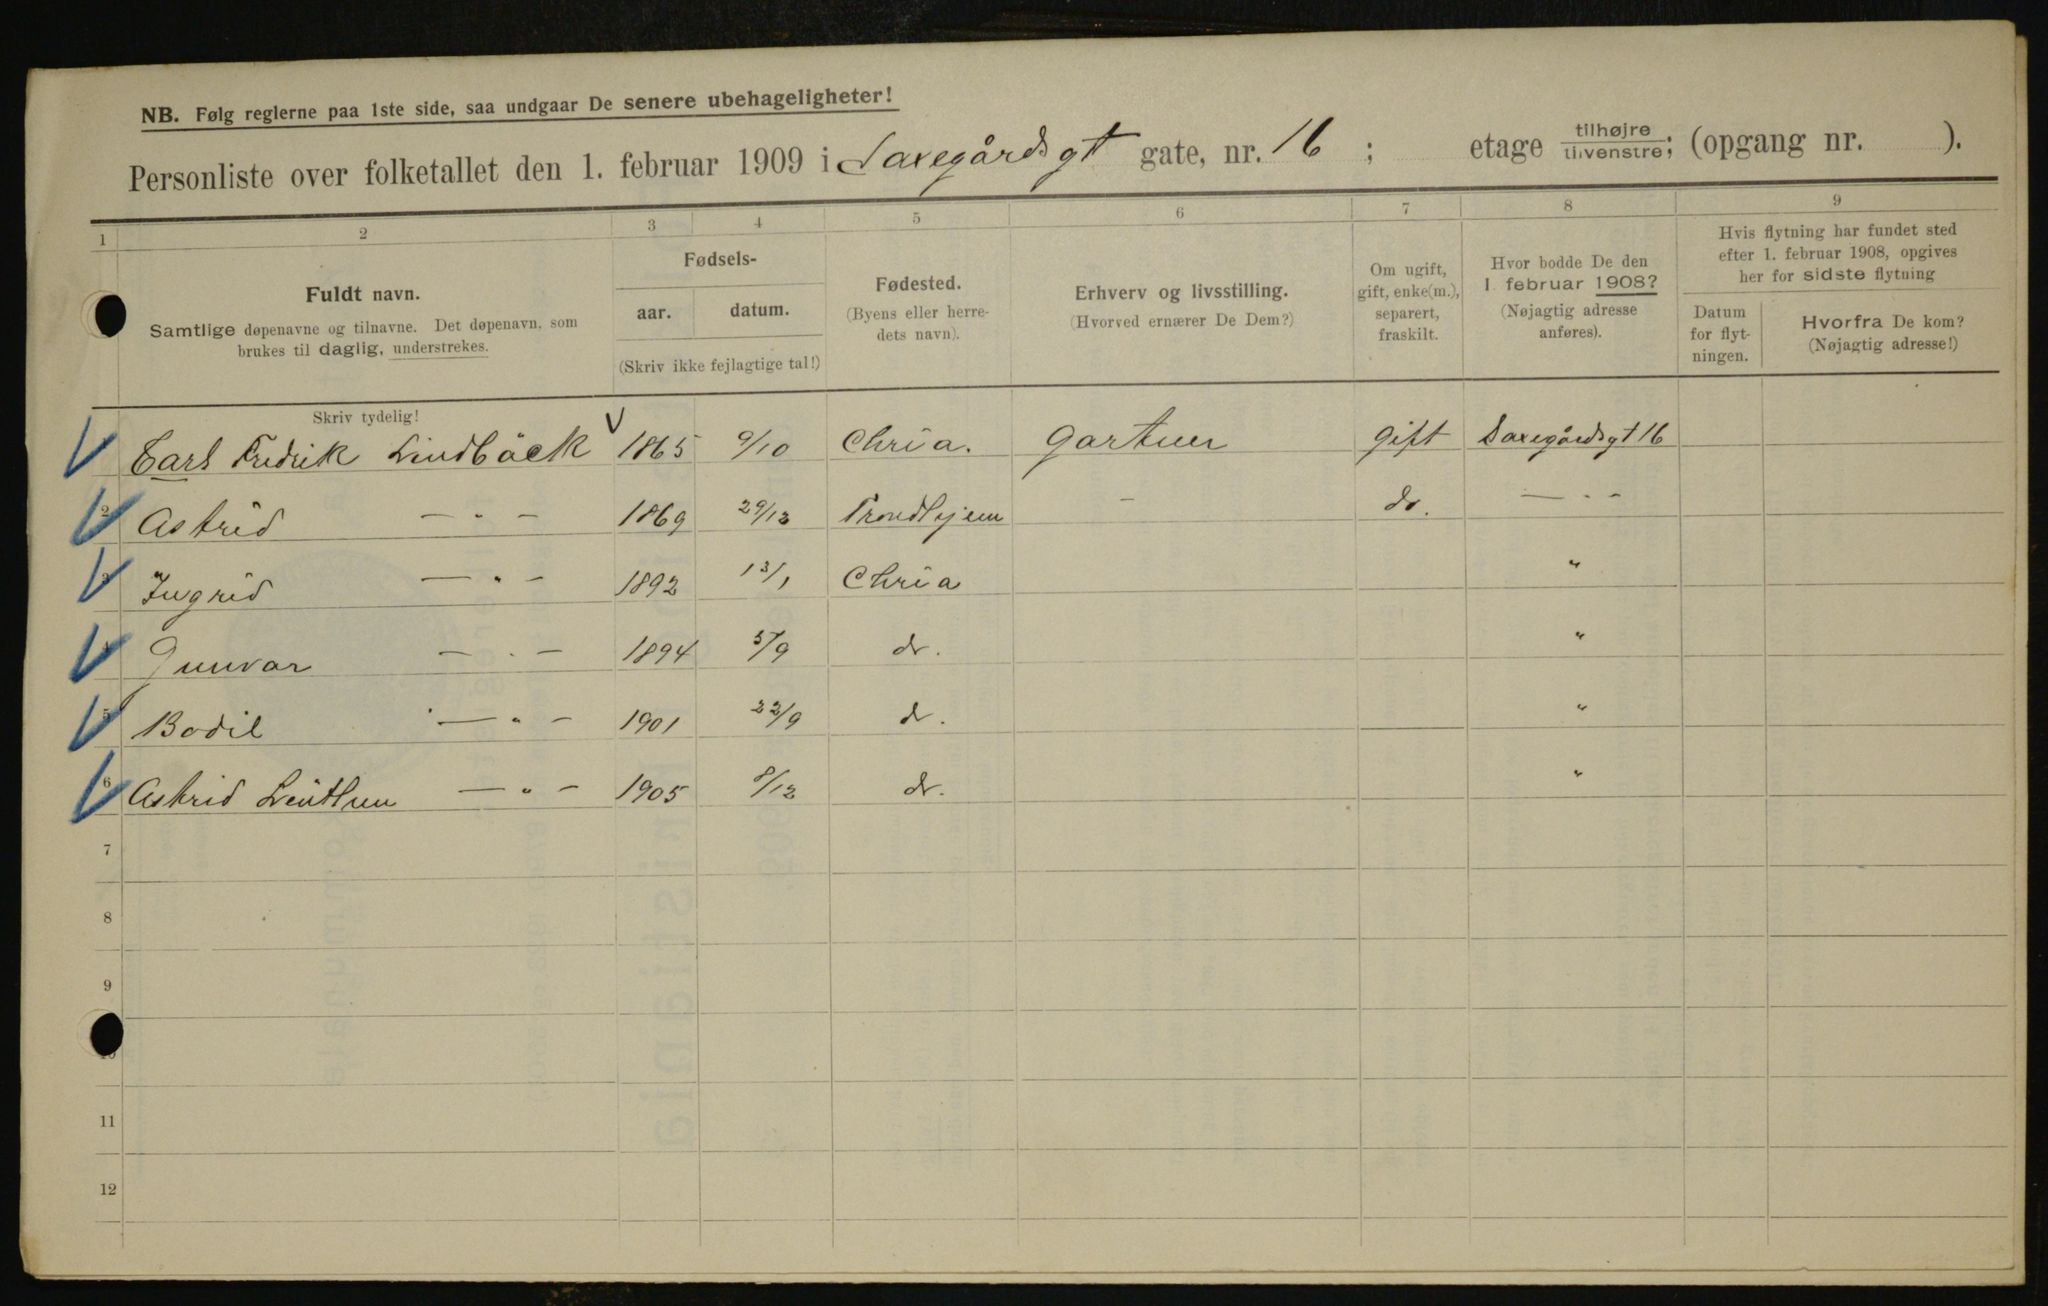 NB. Følg reglerne paa 1ste side, saa undgaar De senere ubehageligheter!
Personliste over folketallet den 1. februar 1909 i Saxegårdsgt gate, nr. 16 ; etage tilhøjre/tilvenstre; (opgang nr. ).
1 2 3 4 5 6 7 8 9
Fuldt navn.
Samtlige døpenavne og tilnavne. Det døpenavn, som
brukes til daglig, understrekes.
Fødsels-
aar. datum.
(Skriv ikke fejlagtige tal!)
Fødested.
(Byens eller herre-
dets navn).
Erhverv og livsstilling.
(Hvorved ernærer De Dem?)
Om ugift,
gift, enke(m.),
separert,
fraskilt.
Hvor bodde De den
1. februar 1908?
(Nøjagtig adresse
anføres).
Hvis flytning har fundet sted
efter 1. februar 1908, opgives
her for sidste flytning
Datum
for flyt-
ningen.
Hvorfra De kom?
(Nøjagtig adresse!)
Skriv tydelig!
Carl Fredrik Lindbäck 1865 9/10 Chria. Gartner gift Saxegårdsgt 16
2 Astrid — " — 1869 29/12 Trondhjem - do. — " —
3 Ingrid — " — 1892 13/1 Chria "
4 Gunvor — " — 1894 5/9 do. "
5 Bodil — " — 1901 22/9 do. "
6 Astrid — " — 1905 8/12 do. "
7
8
9
10
11
12